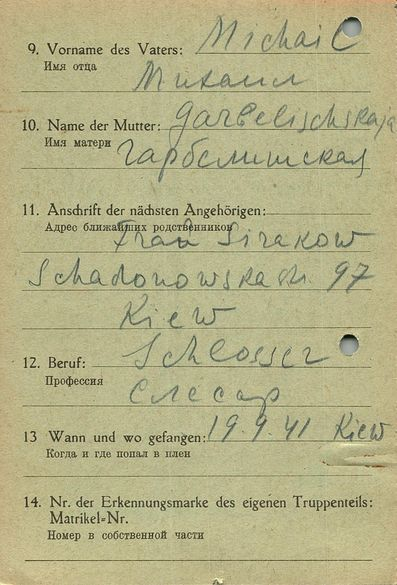 9. Vorname des Vaters: Michail
Имя отца
Михаил
10. Name der Mutter: Garbelischskaja
Имя матери
Гарбелишская
11. Anschrift der nächsten Angehörigen:
Адрес ближайших родственников
Frau Sirakow
Schadonowskastr. 97
Kiew
12. Beruf: Schlosser
Профессия
Слесар
13 Wann und wo gefangen: 19.9.41 Kiew
Когда и где попал в плен
14. Nr. der Erkennungsmarke des eigenen Truppenteils:
Matrikel=Nr.
Номер в собственной части